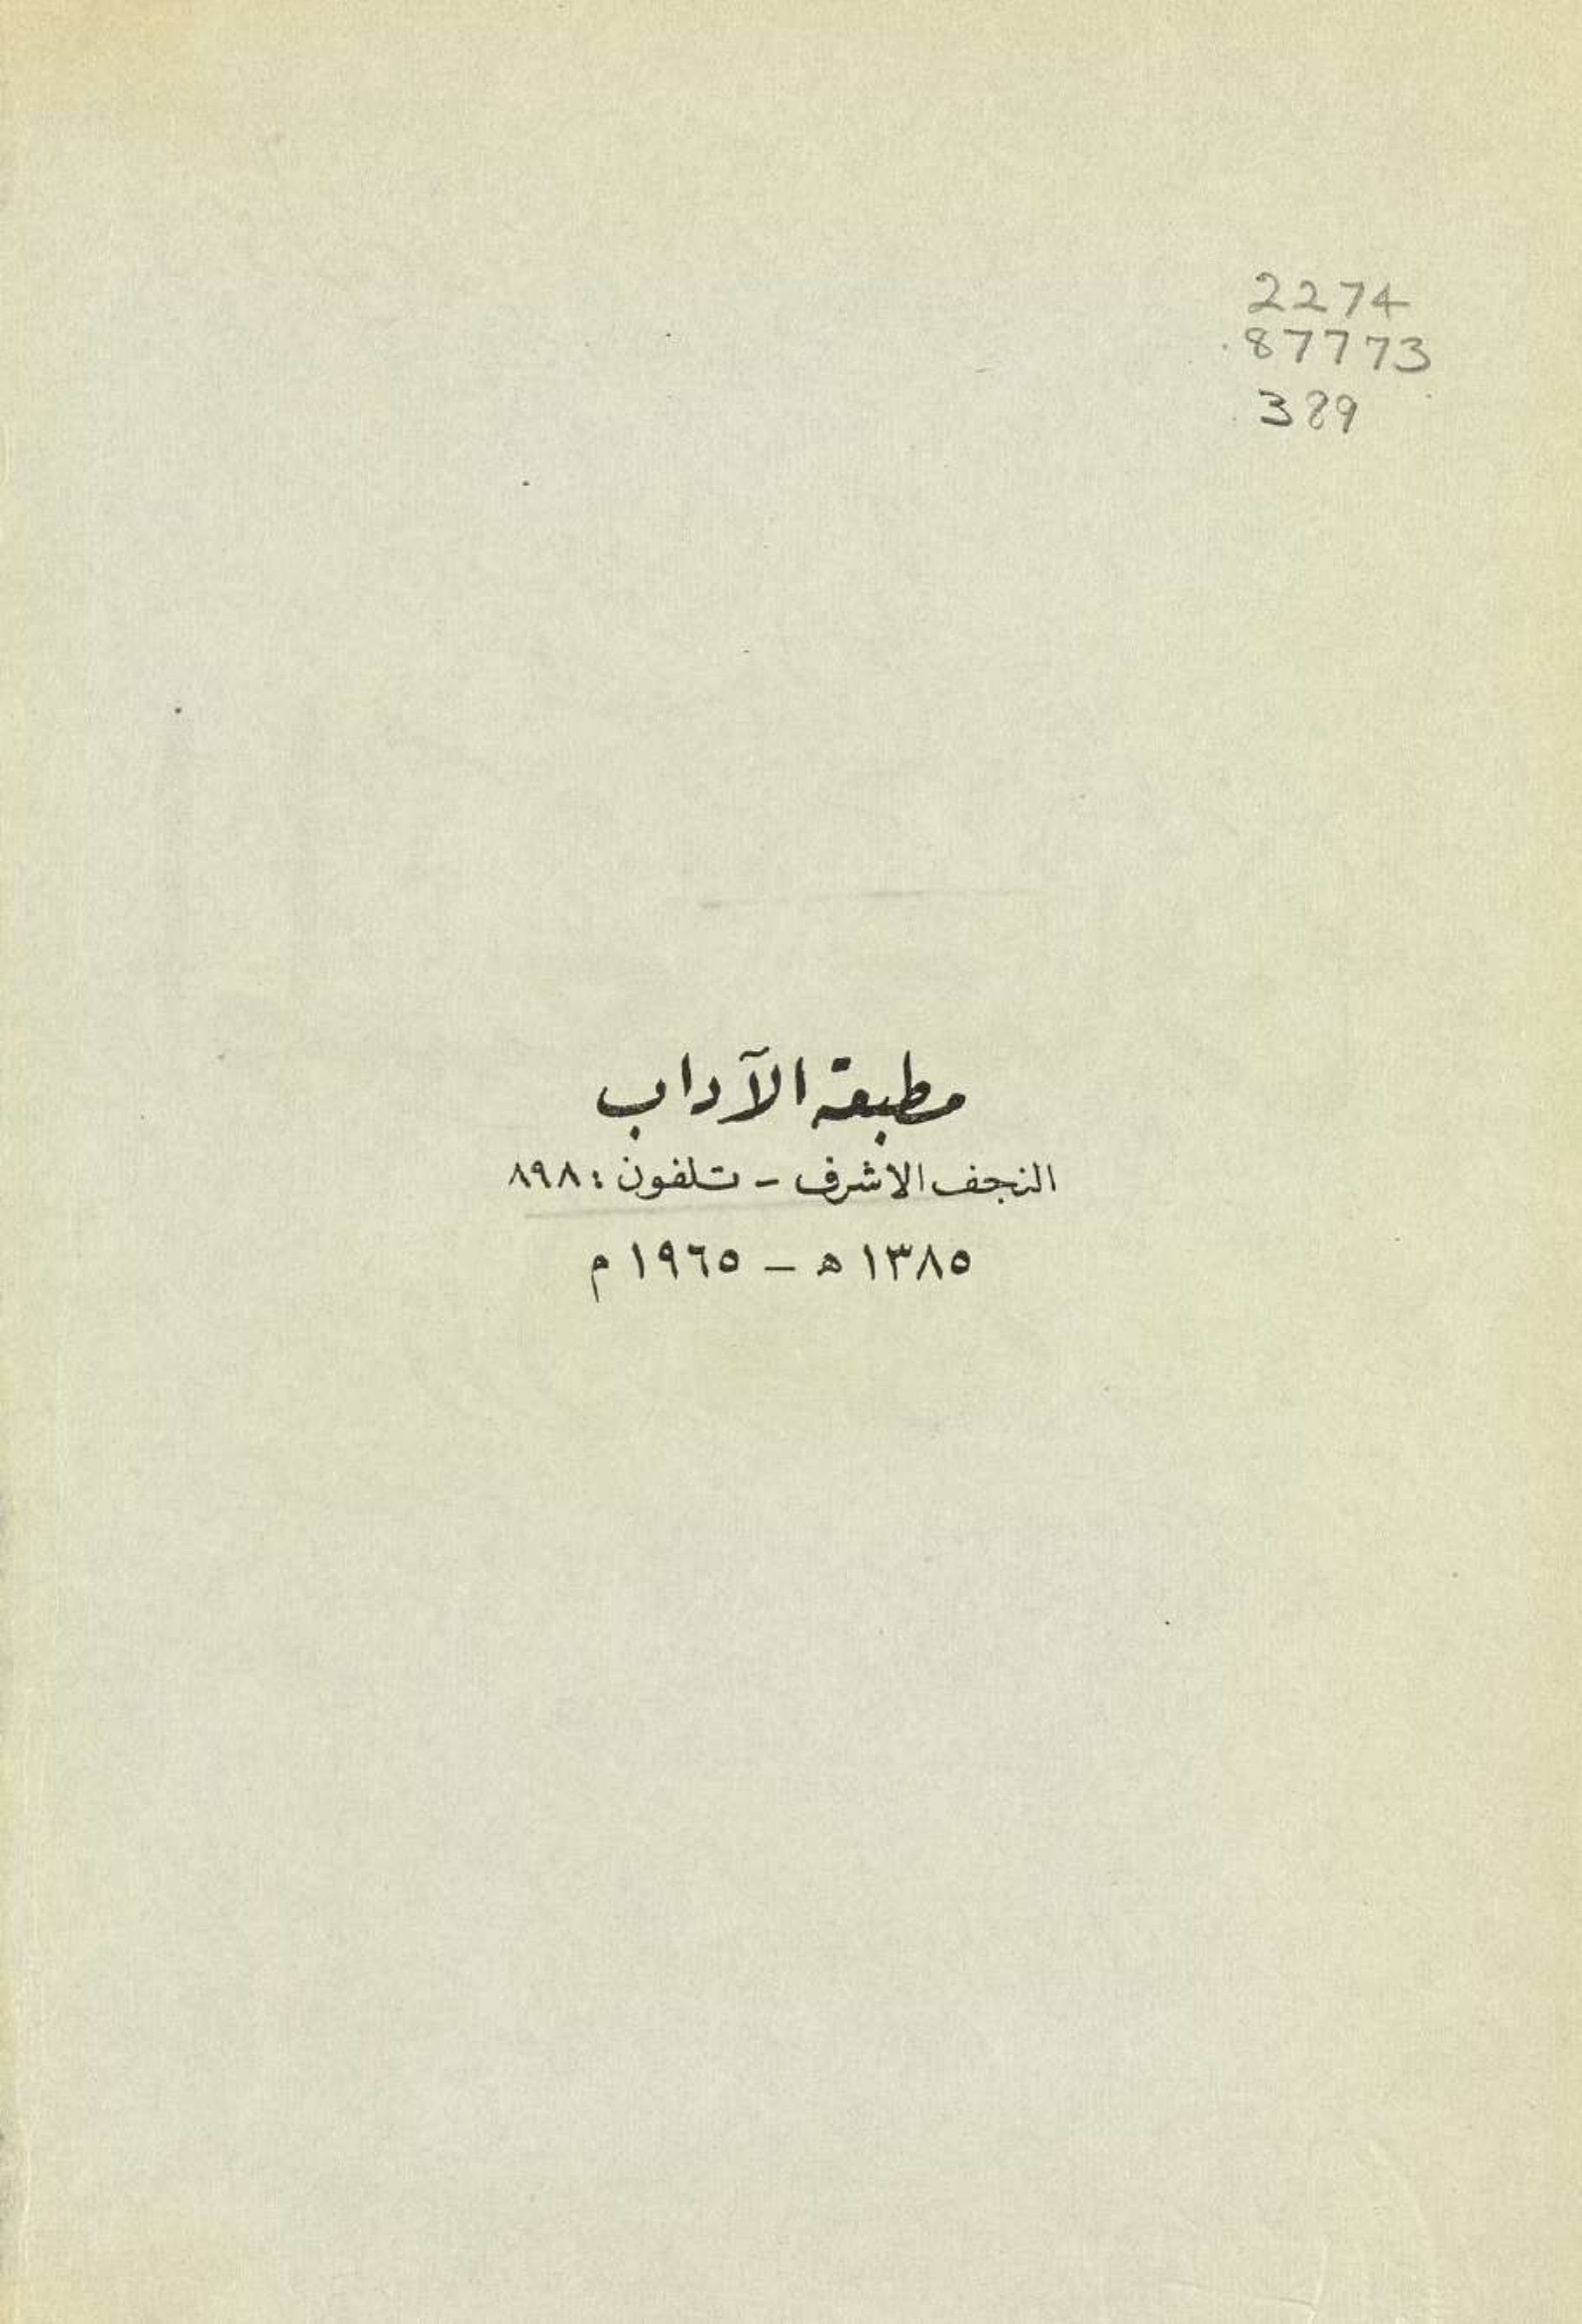 2274
.87773
.389
مطبعة الآداب
النجف الاشرف - تلفون : ٨٩٨
١٣٨٥ ه - ١٩٦٥ م